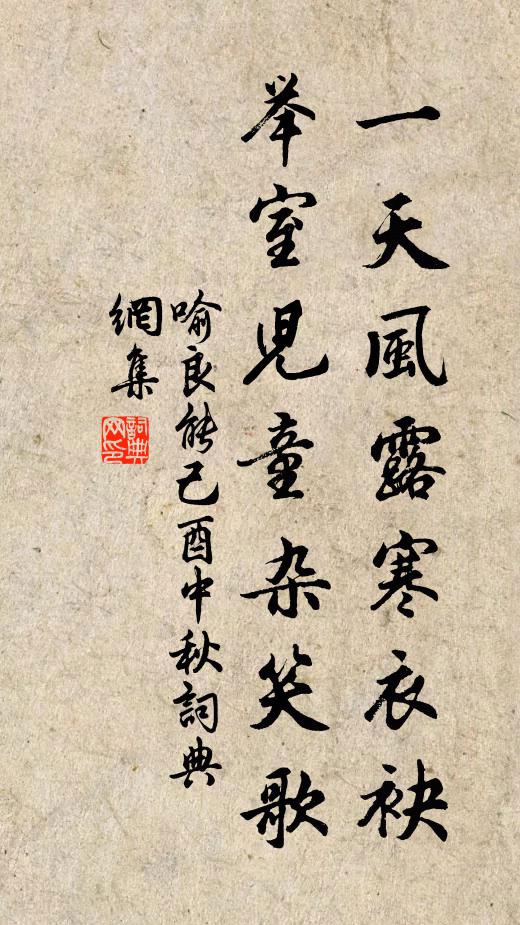 一天風露寒衣袂
举室児童杂笑歌
喻良能己酉中秋詞典
網集
詞典
网印